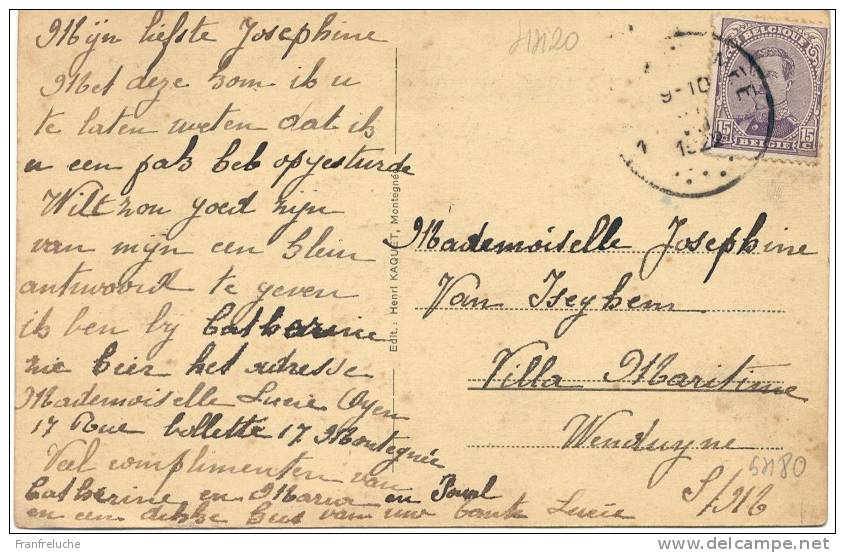 Mijn liefste Josephine
Met deze kom ik u
te laten weten dat ik
u een pak heb opgesturde
Wilt zou goed zijn
van mijn een klein
antwoord te geven
ik ben by Catherine
zie hier het adresse
Mademoiselle Lucie Oyen
17 Rue Collette 17 Montegnée
Veel complimenten van
Catherine en Maria en Paul
en een dikke kus van uw tante Lucie
Edit.: Henri KAQUET, Montegnée
BELGIQUE
15 15 C
BELGIË
9-10
1922
Mademoiselle Josephine
Van Iseghem
Villa Maritime
Wenduyne
S/M
5480
Franfreluche
delcampe.net